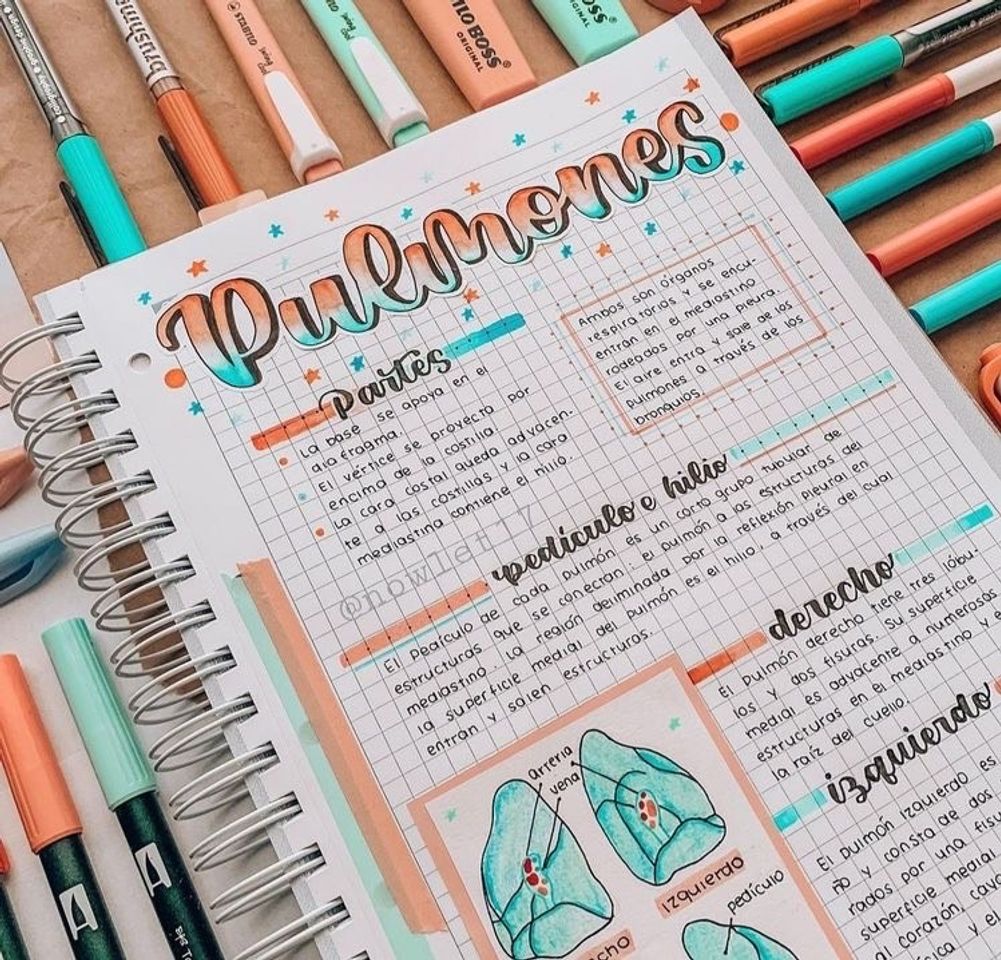 Pulmones
Partes
La base se apoya en el
diafragma.
El vértice se proyecta por
encima de la costilla
La cara costal queda adyacen-
te a las costillas y la cara
mediastina contiene el hilio.
Ambos son órganos
respiratorios y se encu-
entran en el mediastino
rodeados por una pleura.
El aire entra y sale de los
pulmones a través de los
bronquios.
@nowlet17
pedículo e hilio
El pedículo de cada pulmón es un corto grupo tubular de
estructuras que se conectan: el pulmón a las estructuras del
mediastino. La región delimitada por la reflexión pleural en
la superficie medial del pulmón es el hilio, a través del cual
entran y salen estructuras.
derecho
El pulmón derecho tiene tres lóbu-
los y dos fisuras. Su superficie
medial es adyacente a numerosas
estructuras en el mediastino y
la raíz del cuello.
izquierdo
El pulmón izquierdo es
y consta de dos
rados por una
superficie medial
al corazón,
arteria
vena
izquierdo
pedículo
STABILO
swing cool
STABILO
swing cool
LO BOSS
ORIGINAL
BOSS
ORIGINAL